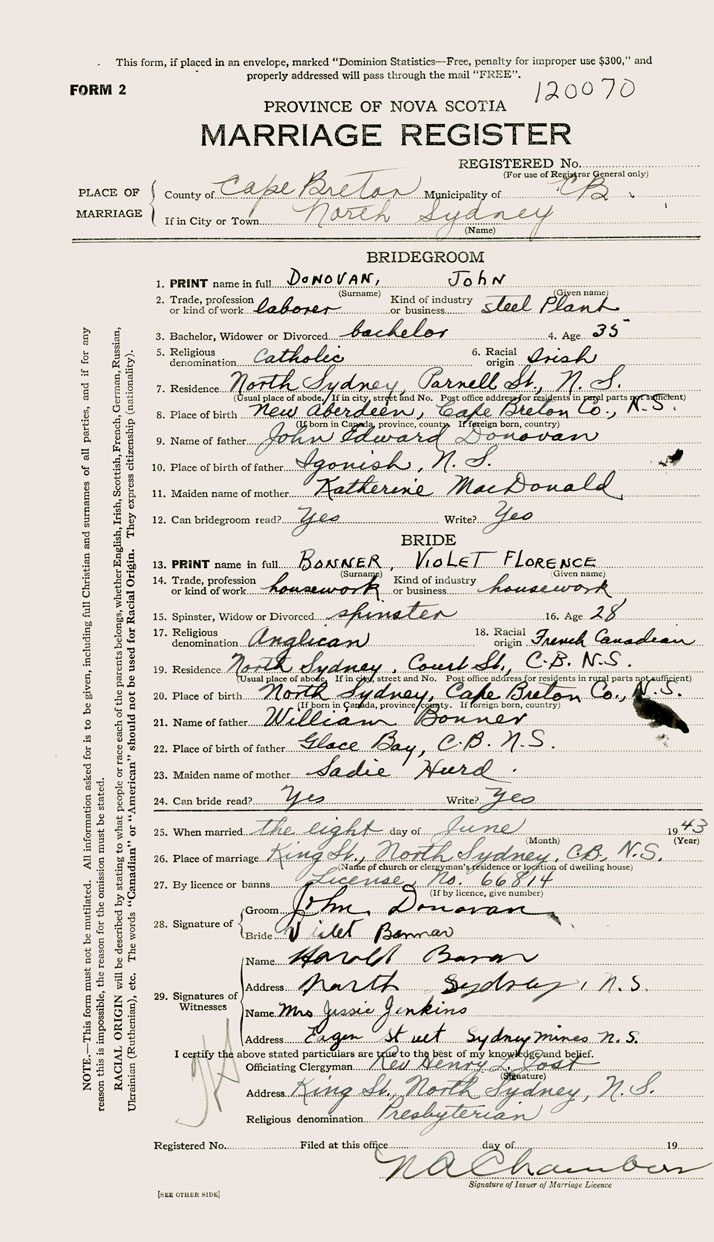 This form, if placed in an envelope, marked "Dominion Statistics—Free, penalty for improper use $300," and
properly addressed will pass through the mail "FREE".
FORM 2
120070
PROVINCE OF NOVA SCOTIA
MARRIAGE REGISTER
REGISTERED No.
(For use of Registrar General only)
PLACE OF MARRIAGE
County of Cape Breton Municipality of C B
If in City or Town North Sydney
(Name)
BRIDEGROOM
1. PRINT name in full DONOVAN, JOHN
(Surname) (Given name)
2. Trade, profession or kind of work laborer Kind of industry or business steel Plant
3. Bachelor, Widower or Divorced bachelor 4. Age 35
5. Religious denomination Catholic 6. Racial origin Irish
7. Residence North Sydney, Parnell St., N. S.
(Usual place of abode. If in city, street and No. Post office address for residents in rural parts not sufficient)
8. Place of birth New Aberdeen, Cape Breton Co., N.S.
(If born in Canada, province, county. If foreign born, country)
9. Name of father John Edward Donovan
10. Place of birth of father Igonish, N. S.
11. Maiden name of mother Katherine MacDonald
12. Can bridegroom read? Yes Write? Yes
BRIDE
13. PRINT name in full BONNER, VIOLET FLORENCE
(Surname) (Given name)
14. Trade, profession or kind of work housework Kind of industry or business housework
15. Spinster, Widow or Divorced spinster 16. Age 28
17. Religious denomination Anglican 18. Racial origin French Canadian
19. Residence North Sydney, Court St., C.B. N.S.
(Usual place of abode. If in city, street and No. Post office address for residents in rural parts not sufficient)
20. Place of birth North Sydney, Cape Breton Co., N.S.
(If born in Canada, province, county. If foreign born, country)
21. Name of father William Bonner
22. Place of birth of father Glace Bay, C.B. N.S.
23. Maiden name of mother Sadie Hurd
24. Can bride read? Yes Write? Yes
25. When married the eight day of June 1943
(Month) (Year)
26. Place of marriage King St., North Sydney, C.B., N.S.
(Name of church or clergyman's residence or location of dwelling house)
27. By licence or banns License, No. 66814
(If by licence, give number)
28. Signature of
Groom John Donovan
Bride Violet Bonnar
29. Signatures of Witnesses
Name Harold
Address North Sydney, N.S.
Name Mrs Jessie Jenkins
Address Sydney Mines N.S.
I certify the above stated particulars are true to the best of my knowledge and belief.
Officiating Clergyman Rev Henry L. Jost
(Signature)
Address King St., North Sydney, N. S.
Religious denomination Presbyterian
Registered No. Filed at this office day of 19
N A Chambers
Signature of Issuer of Marriage Licence
[SEE OTHER SIDE]
NOTE.—This form must not be mutilated. All information asked for is to be given, including full Christian and surnames of all parties, and if for any
reason this is impossible, the reason for the omission must be stated.
RACIAL ORIGIN will be described by stating to what people or race each of the parents belongs, whether English, Irish, Scottish, French, German, Russian,
Ukrainian (Ruthenian), etc. The words "Canadian" or "American" should not be used for Racial Origin. They express citizenship (nationality).